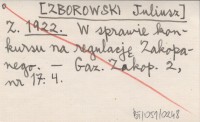 [ZBOROWSKI Juliusz]
Z. 1922. W sprawie kon-
kursu na regulację Zakopa-
nego. — Gaz. Zakop. 2,
nr 17: 4.